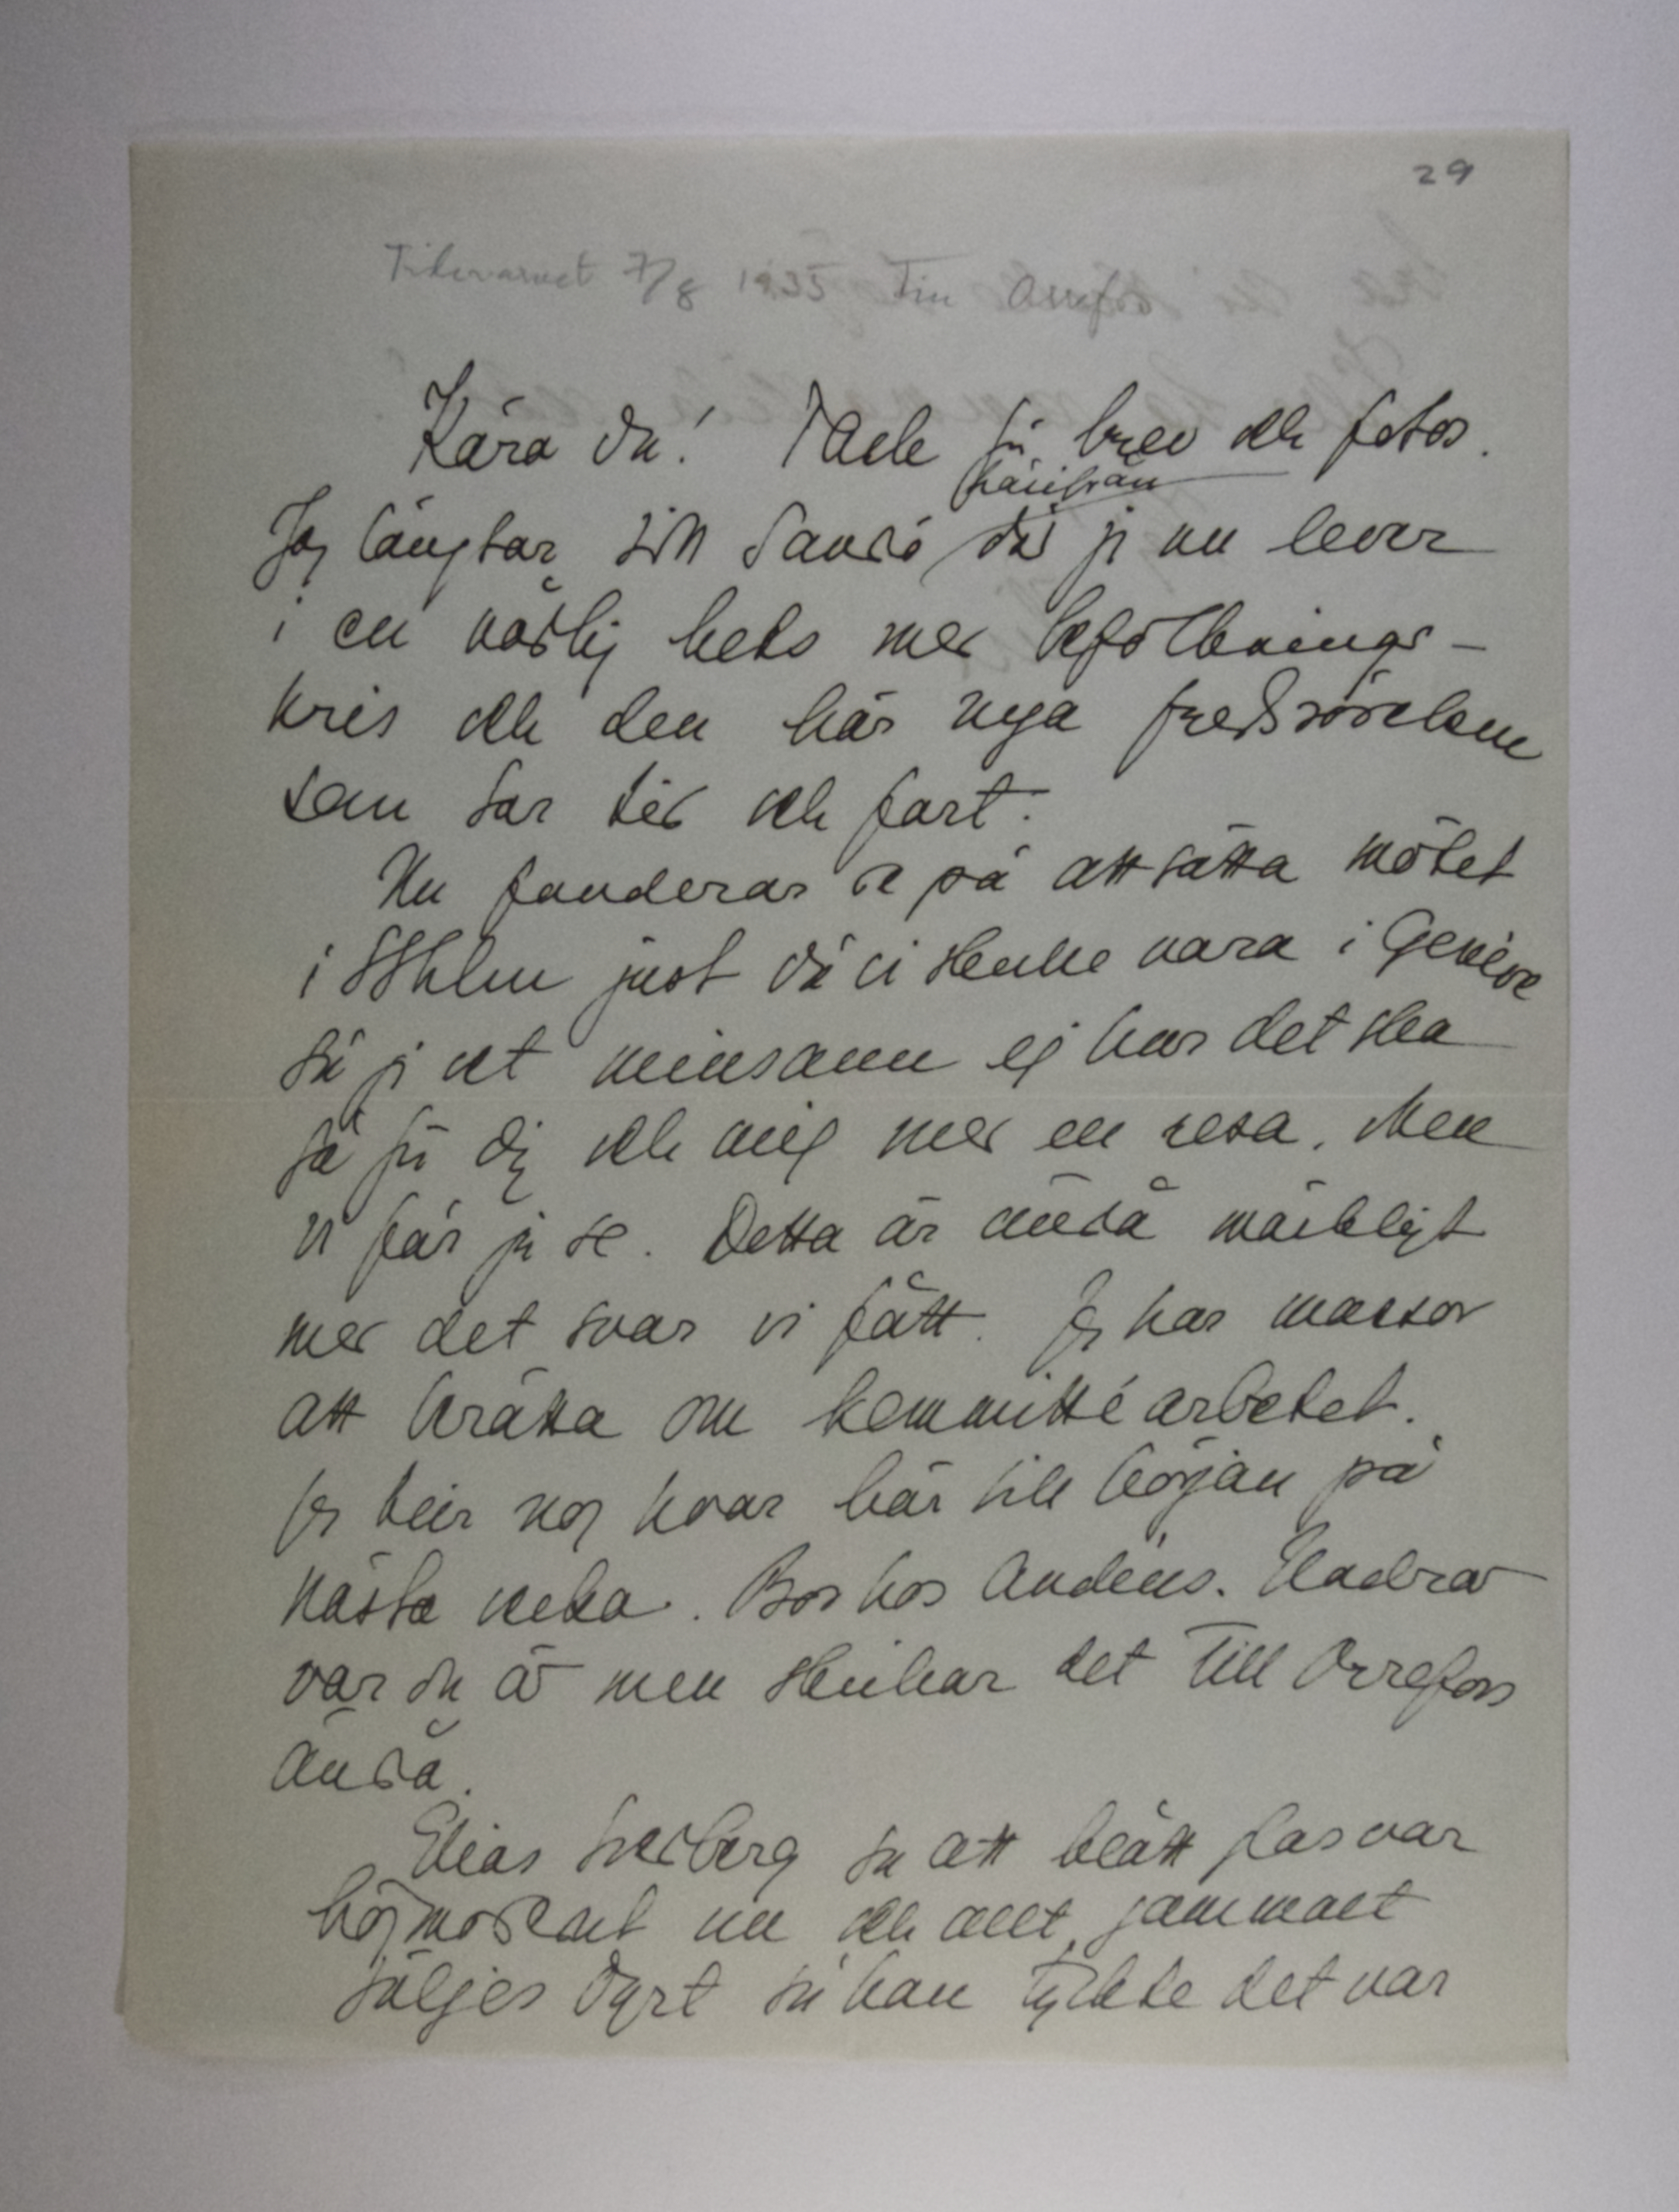 29
Fikevarvet 7/8 1935 Till Orrefors
Kära du! Tack för brev och fotos.
härifrån
Jag längtar till Sandö då jag nu lever
i en väldig hets med befolknings-
kris och den här nya fredsrörelsen
som tar tid och fart.
Nu funderar de på att sätta mötet
i Sthlm just då vi skulle vara i Genève
så jag vet minsann ej hur det ska
gå för dig och mig med en resa. Men
vi får ju se. Detta är ändå märkligt
med det svar vi fått. Jag har massor
att berätta om kommittéarbetet.
Jag blir nog kvar här till början på
nästa vecka. Bor hos Andéns. Undrar
var du är men skickar det till Orrefors
ändå.
Elias Svedberg sa att blått glas var
högmodernt nu och allt gammalt
säljes dyrt så han tyckte det var